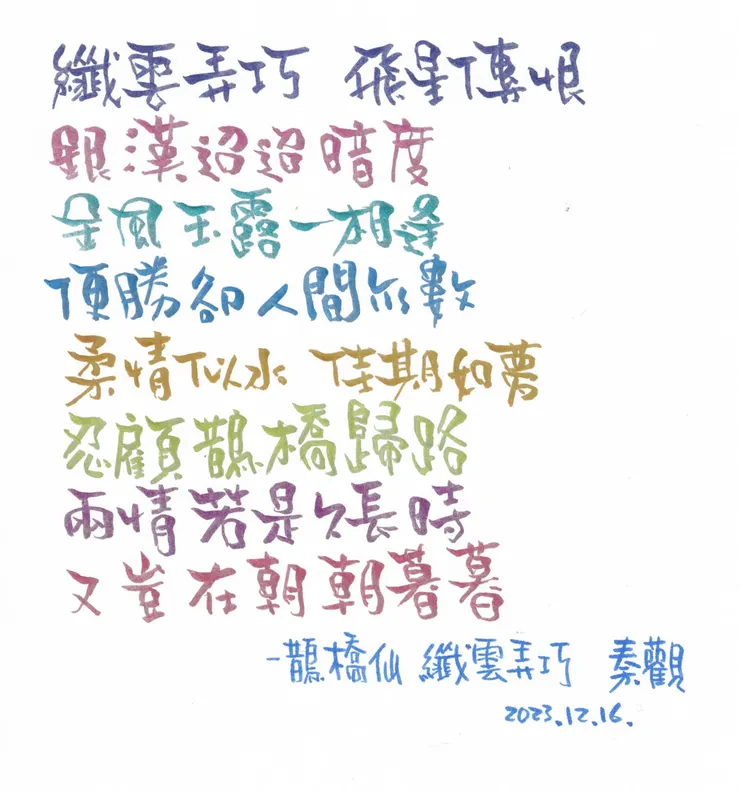 纖雲弄巧 飛星傳恨
銀漢迢迢暗度
金風玉露一相逢
便勝卻人間所數
柔情似水 佳期如夢
忍顧鵲橋歸路
兩情若是久長時
又豈在朝朝暮暮
-鵲橋仙 纖雲弄巧 秦觀
2023.12.16.